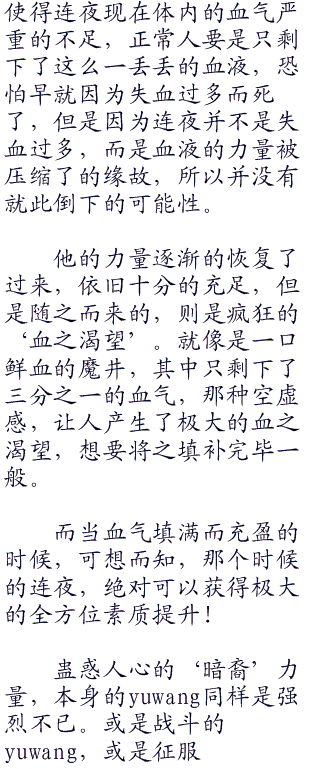 使得连夜现在体内的血气严
重的不足，正常人要是只剩
下了这么一丢丢的血液，恐
怕早就因为失血过多而死
了，但是因为连夜并不是失
血过多，而是血液的力量被
压缩了的缘故，所以并没有
就此倒下的可能性。
他的力量逐渐的恢复了
过来，依旧十分的充足，但
是随之而来的，则是疯狂的
‘血之渴望’。就像是一口
鲜血的魔井，其中只剩下了
三分之一的血气，那种空虚
感，让人产生了极大的血之
渴望，想要将之填补完毕一
般。
而当血气填满而充盈的
时候，可想而知，那个时候
的连夜，绝对可以获得极大
的全方位素质提升！
蛊惑人心的‘暗裔’力
量，本身的yuwang同样是强
烈不已。或是战斗的
yuwang，或是征服